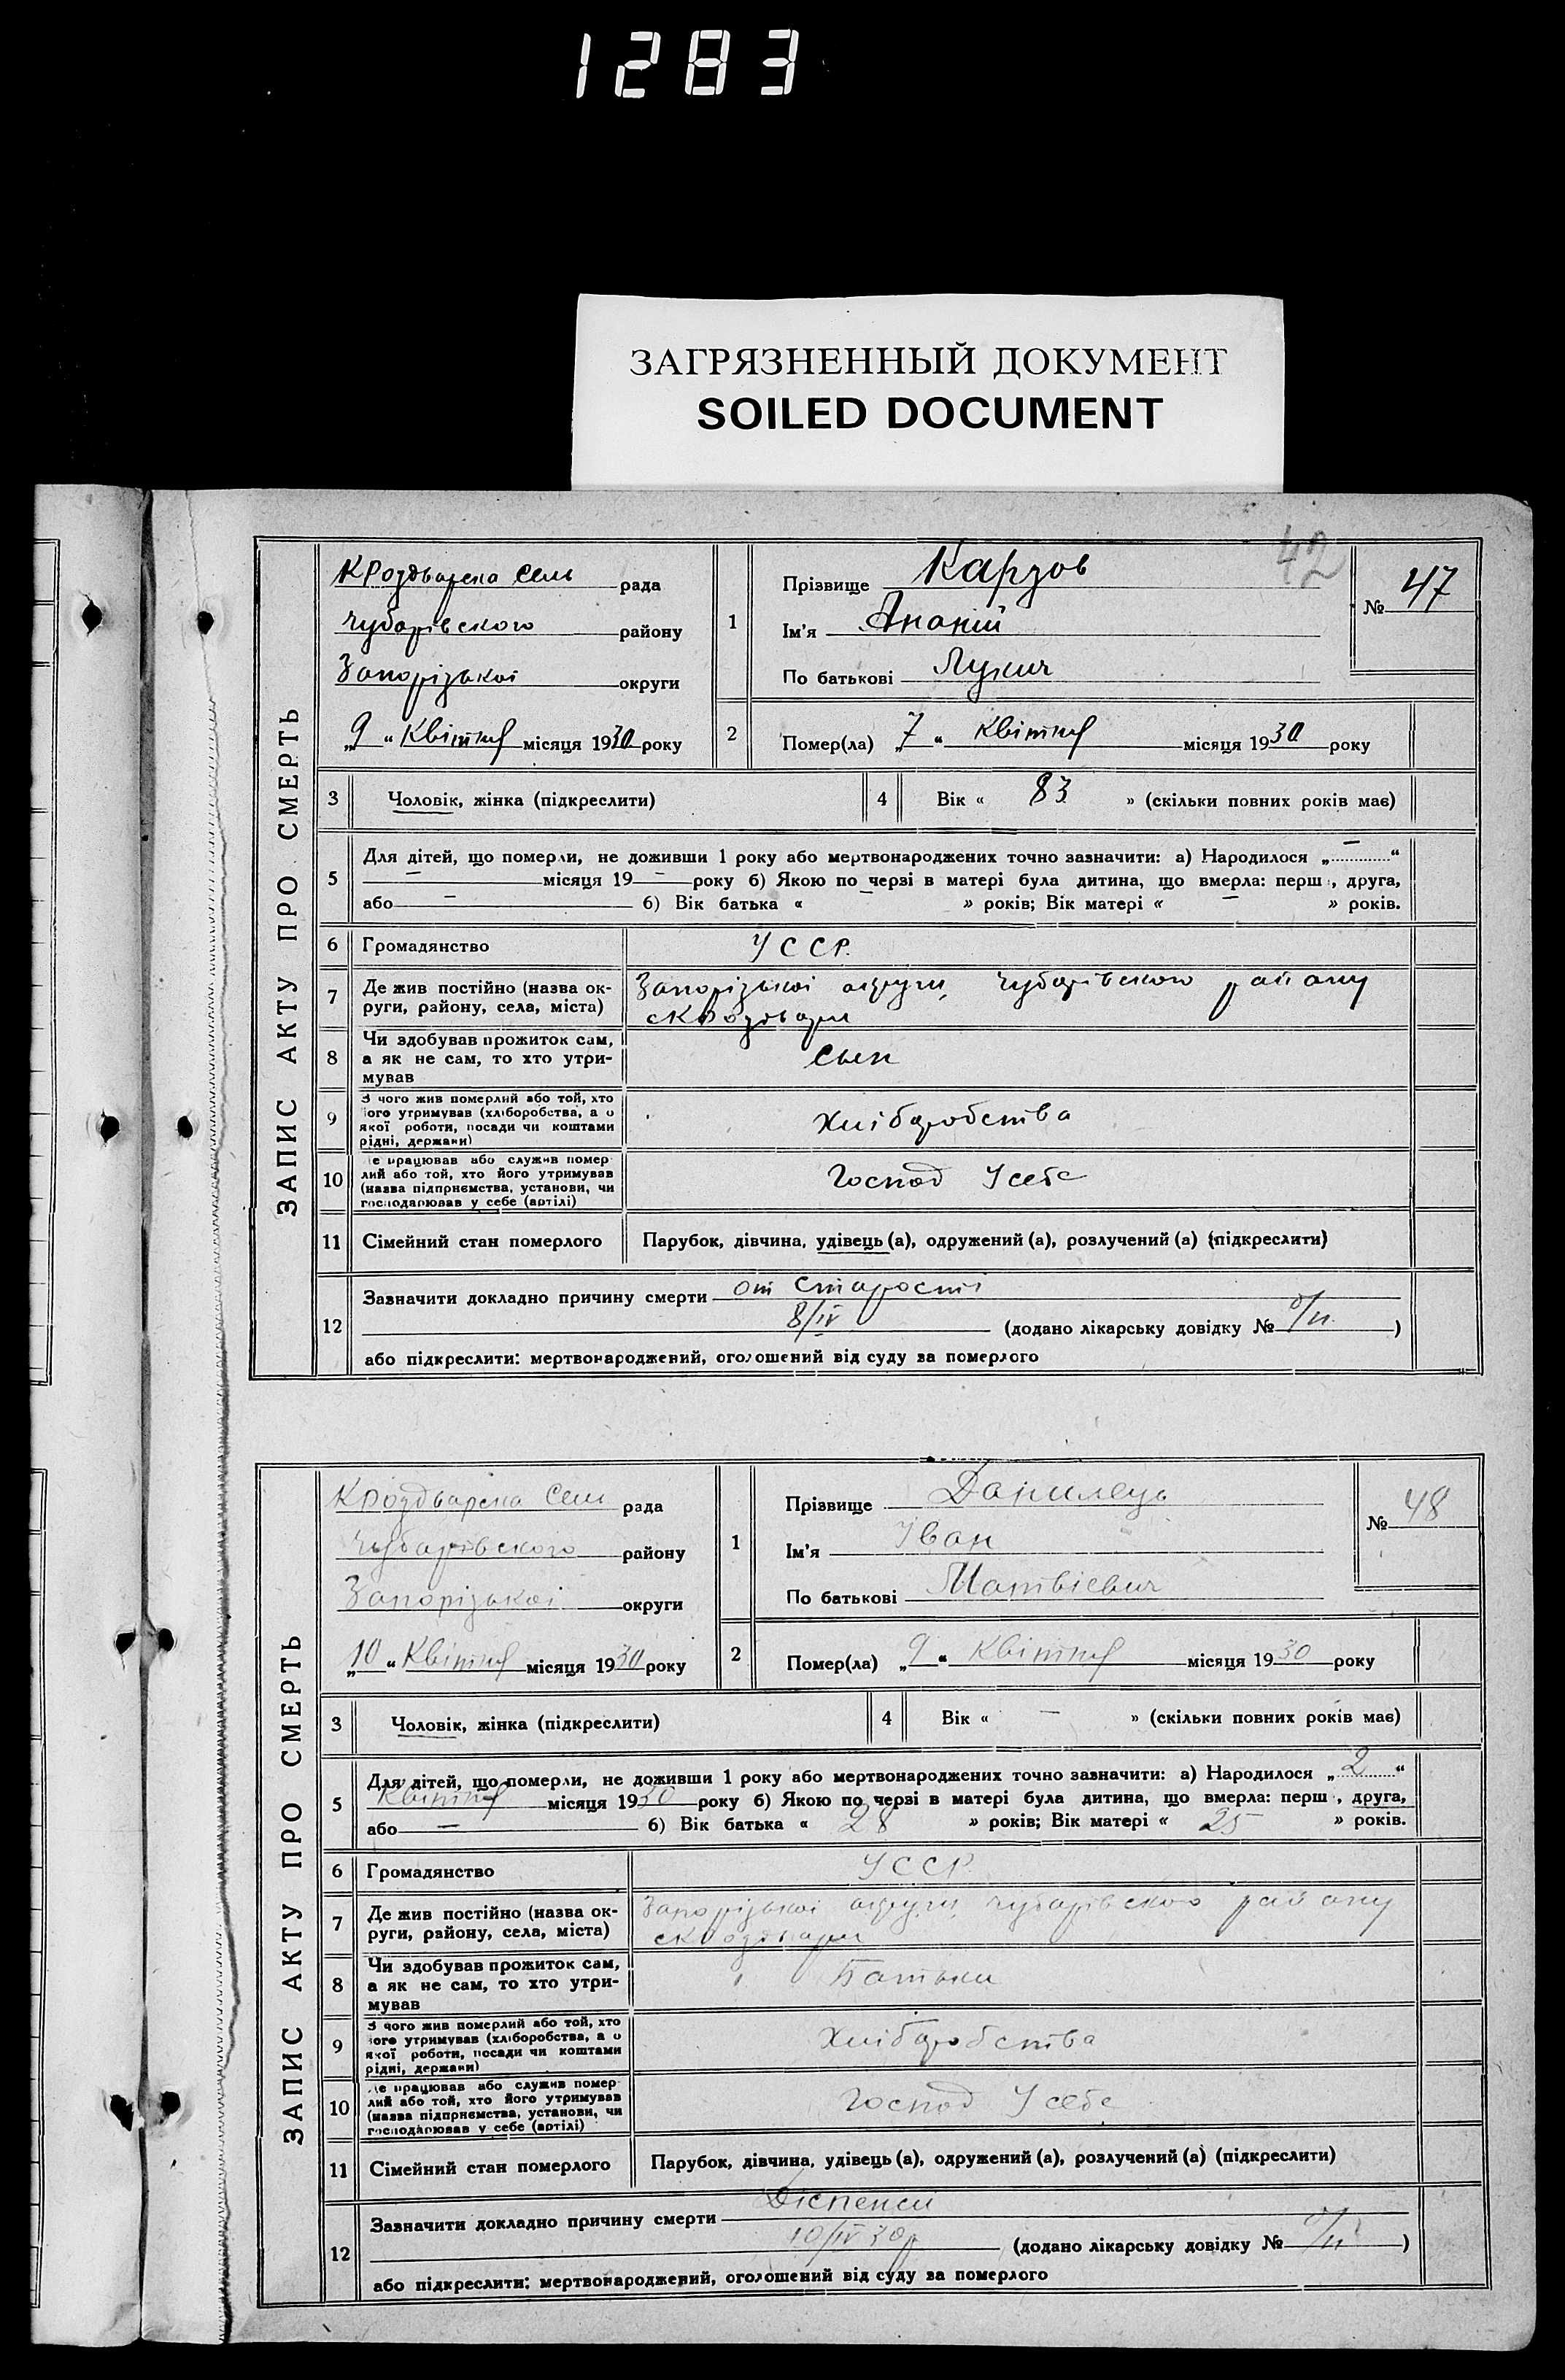 1283
ЗАГРЯЗНЕННЫЙ ДОКУМЕНТ
SOILED DOCUMENT
42
ЗАПИС АКТУ ПРО СМЕРТЬ
КРоздварска Сель рада
Чубарівского району
Запорізькоі округи
„9“ Квітня місяця 1930 року
1
Прізвище Карзов
Ім'я Ананій
По батькові Лукич
№ 47
2 Помер(ла) „7“ Квітня місяця 1930 року
3 Чоловік, жінка (підкреслити)
4 Вік « 83 » (скільки повних років має)
5 Для дітей, що померли, не доживши 1 року або мертвонароджених точно зазначити: а) Народилося „ — “
— місяця 19 — року б) Якою по черзі в матері була дитина, що вмерла: перш, друга,
або — 6) Вік батька « — » років; Вік матері « — » років.
6 Громадянство УССР.
7 Де жив постійно (назва округи, району, села, міста) Запорізькоі округи, Чубарівского району
8 Чи здобував прожиток сам, а як не сам, то хто утримував сын
9 З чого жив померлий або той, хто його утримував (хліборобства, а о якої роботи, посади чи коштами рідні, держави) Хліборобства
10 Де працював або служив померлий або той, хто його утримував (назва підприємства, установи, чи господарював у себе (артілі) Господ У себе
11 Сімейний стан померлого Парубок, дівчина, удівець (а), одружений (а), розлучений (а) (підкреслити)
12 Зазначити докладно причину смерти от старості
8/IV (додано лікарську довідку № )
або підкреслити: мертвонароджений, оголошений від суду за померлого
ЗАПИС АКТУ ПРО СМЕРТЬ
КРоздварска Сель рада
Чубарівского району
Запорізькоі округи
„10“ Квітня місяця 1930 року
1
Прізвище Данилець
Ім'я Іван
По батькові Матвієвич
№ 48
2 Помер(ла) „9“ Квітня місяця 1930 року
3 Чоловік, жінка (підкреслити)
4 Вік « — » (скільки повних років має)
5 Для дітей, що померли, не доживши 1 року або мертвонароджених точно зазначити: а) Народилося „2“
Квітня місяця 1930 року б) Якою по черзі в матері була дитина, що вмерла: перш, друга,
або — 6) Вік батька « 28 » років; Вік матері « 25 » років.
6 Громадянство УССР
7 Де жив постійно (назва округи, району, села, міста) Запорізькоі округи, Чубарівского району
8 Чи здобував прожиток сам, а як не сам, то хто утримував Батьки
9 З чого жив померлий або той, хто його утримував (хліборобства, а о якої роботи, посади чи коштами рідні, держави) Хліборобства
10 Де працював або служив померлий або той, хто його утримував (назва підприємства, установи, чи господарював у себе (артілі) Господ У себе
11 Сімейний стан померлого Парубок, дівчина, удівець (а), одружений (а), розлучений (а) (підкреслити)
12 Зазначити докладно причину смерти
10/IV 30р (додано лікарську довідку № )
або підкреслити: мертвонароджений, оголошений від суду за померлого